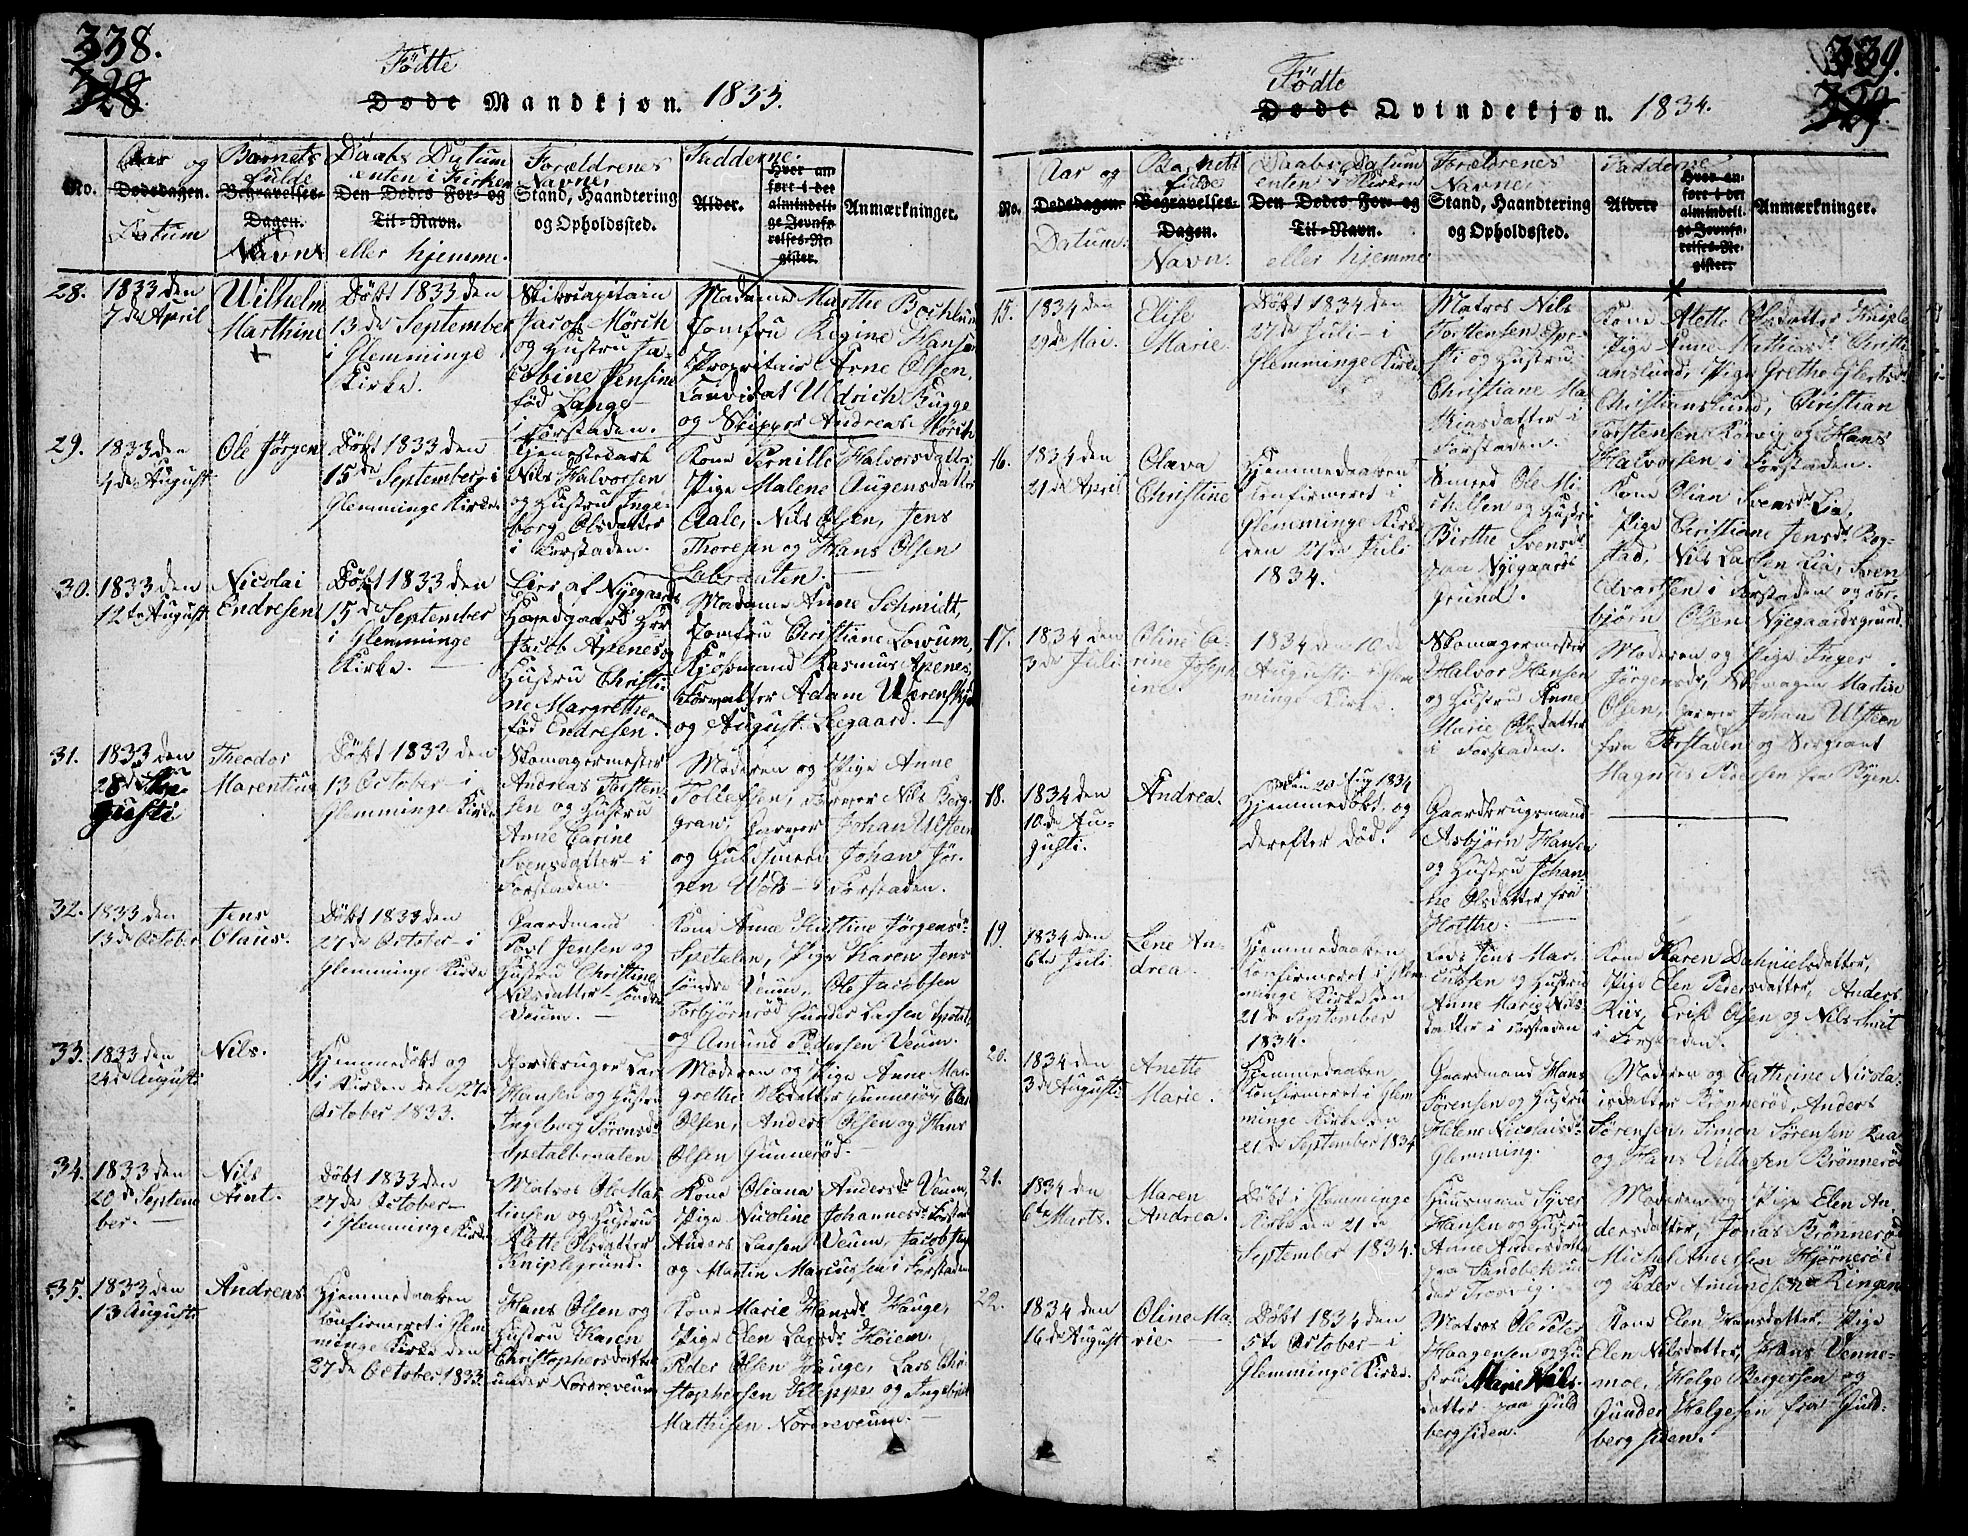 338.
328.
Födte
Døde Mandkjøn. 1833.
No.
Aar og
Dødsdagen.
Datum
Barnets
fulde
Begravelses-
Dagen.
Navn
Daabs Datum
enten i Kirken
Den Dødes For- og
Til-Navn.
eller hjemme.
Forældrenes
Navne,
Stand, Haandtering
og Opholdssted.
Fadderne.
Alder.
Hvor an-
ført i det
almindeli-
ge Jevnfø-
relses-Re-
gister.
Anmærkninger.
28.
1833 den
7de April
Wilhelm
Marthine
+
Döbt 1833 den
13de September
i Glemminge
Kirke.
Skibscapitain
Jacob Mørch
og Hustru Ja-
cobine Jensine
fød Lange
i Forstaden.
Madame Marthe Bochlum
Jomfru Regine Hansen
Propritair Arne Olsen,
Candidat Uldrich Bugge
og Skipper Andreas Mörch
29.
1833 den
4de August
Ole Jörgen
Döbt 1833 den
15de September i
Glemminge Kirke.
Tjenestekarl
Nils Halvorsen
og Hustru Inge-
borg Olsdatter
i Forstaden.
Kone Pernille Halvorsdatter
Pige Malene Augensdatter
Aale, Nils Olsen, Jens
Thoresen og Hans Olsen
Labraaten.
30.
1833 den
12te August
Nicolai
Endresen
Döbt 1833 den
15de September
i Glemminge
Kirke.
Eier af Nygaards
Hovedgaard Hr
Jacob Apenes og
Hustru Christi-
ne Margrethe
fød Endresen.
Madame Anne Schmidt,
Jomfru Christiane Lowum,
Kjöbmand Rasmus Apenes,
Forvalter Adam Werenskjold
og August Leegaard.
31.
1833 den
28de Au-
gusti
Theodor
Marentius
Döbt 1833 den
13 October i
Glemminge Kirke
Skomagermester
Andreas Torsten-
sen og Hustru
Anne Carine
Svensdatter i
Forstaden.
Moderen og Pige Anne
Tollefsen, Farver Nils Berg-
grav, Garver Johan Ulsteen
og Guldsmed Johan Jör-
gen Wold i Forstaden.
32.
1833 den
13de October
Jens
Olaus.
Döbt 1833 den
27de October i
Glemminge Kirke
Gaardmand
Poul Jensen og
Hustru Christine
Nilsdatter Søndre
Veum.
Kone Anne Kirstine Jörgensdr
Spetalen, Pige Karen Jens
søndre Veum, Ole Jacobsen
Torbjørnrød Gunder Larsen Spetal,
og Amund Pedersen Veum.
33.
1833 den
24de Augusti
Nils.
Hjemmedöbt og
i Kirken den 27de
October 1833.
Jordbruger Lars
Hansen og Hustru
Ingeborg Sørensdr
Spetalbraaten
Moderen og Pige Anne Mar-
grethe Olsdatter Gunnerød, Claus
Olsen, Anders Olsen og Hans
Olsen Gunnerød.
34.
1833 den
20de Septem-
ber.
Nils
Arnt.
Döbt 1833 den
27de October
i Glemminge Kirke
Matros Ole Mar-
tinsen og Hustru
Alette Olsdatter
Kniplegrund.
Kone Oliana Andersdr Veum,
Pige Nicoline Johannesdr Forstad
Anders Larsen Veum, Jacob Jens
og Martin Marcussen i Forstaden
35.
1833 den
13 Augusti
Andreas
Hjemmedaaben
Konfirmeret i Glem-
minge Kirke den
27de October 1833.
Hans Olsen og
Hustru Karen
Christophersdatter
under Nordreveum
Kone Marie Hansdr Hauge,
Pige Elen Larsdr Høiem.
Peder Olsen Hauge, Lars Chri-
stophersen Kleppe og Ingebret
Mathisen Nordreveum.
339.
329.
Födte
Døde Qvindekjøn. 1834.
No.
Aar og
Dødsdagen.
Datum.
Barnets
fulde
Begravelses-
Dagen.
Navn.
Daabs Datum
enten i Kirken
Den Dødes For- og
Til-Navn.
eller hjemme
Forældrenes
Navne,
Stand, Haandtering
og Opholdssted.
Fadderne
Alder.
Hvor an-
ført i det
almindeli-
ge Jevnfø-
relses-Re-
gister.
Anmærkninger.
15.
1834 den
29de Mai.
Elise
Marie.
Döbt 1834 den
27de Juli i
Glemminge Kirke
Matros Nils
Torstensen
og Hustru
Christiane Ma-
thiasdatter i
Forstaden.
Kone Alette Olsdatter Kniple
Pige Anne Mathiasdr Christi-
anslund, Pige Grethe
Christianslund, Christian
Torstensen og Hans
Halvorsen i Forstaden.
16.
1834 den
21de April
Olava
Christine
Hjemmedaaben
Konfirmeret i
Glemminge Kirke
den 27de Juli
1834.
Smeed Ole Mi-
chelsen og Hustru
Birthe Svensdr
paa Nygaards
grund.
Kone Olian Svensdr Lia,
Pige Christiane Jensdr Bog-
stad, Nils Larsen Lia, Sven
Edvartsen i Forstaden og Thor-
bjørn Olsen Nygaardsgrund.
17.
1834 den
3de Juli
Oline Ca-
rine Joseph-
ine.
1834 den 10de
Augusti i Glem-
minge Kirke.
Skomagermester
Halvor Hansen
og Hustru Anne
Marie Olsdatter
i Forstaden.
Moderen og Pige Inger
Jörgensdr, Skomager Martin
Olsen, Garver Johan Ulsteen
fra Forstaden og Sergeant
Magnus Pedersen fra Byen.
18.
1834 den
10de Au-
gusti.
Andrea.
den 20 Aug 1834
Hjemmedöbt og
derefter død.
Gaardbrugsmand
Asbjørn Hansen
og Hustru Johan-
ne Olsdatter fra
Holthe.
19.
1834 den
6te Juli
Lene An-
drea.
Hjemmedaaben
Konfirmeret i Glem-
minge Kirke den
21de September
1834.
Lods Jens Mar-
cussen og Hustru
Anne Marie Nils-
datter i Forstaden
Kone Karen Dahnielsdatter,
Pige Elen Pedersdatter, Anders
Riis, Erik Olsen og Nils Smit
i Forstaden.
20.
1834 den
3de Augusti
Anette
Marie.
Hjemmedaaben
Konfirmeret i Glem-
minge Kirke den
21de September 1834
Gaardmand Hans
Sørensen og Hustru
Helene Nicolaisdr
Glemming.
Moderen og Cathrine Nicola-
isdatter Brønnerød, Anders
Sørensen, Simon Sørensen
og Hans Brønnerød
21.
1834 den
6te Marts.
Maren
Andrea.
Döbt i Glemminge
Kirke den 21de
September 1834.
Huusmand Syver
Hansen og Hustru
Anne Andersdatter
paa Sandbek un-
der Trosvig.
Moderen og Pige Elen An-
dersdatter, Jonas Brønnerød
Michel Andersen Hjørnerød
og Peder Amundsen Ringen
22.
1834 den
16de August
Oline Ma-
rie.
Döbt 1834 den
5te October i
Glemminge Kirke.
Matros Ole Peter
Haagensen og Hu-
stru Marie Nils-
datter paa Guld-
bergsiden.
Kone Elen Hansdatter, Pige
Elen Nilsdatter, Hans Venne-
moe, Helge Bergersen og
Gunder Helgesen fra Guld-
bergsiden.